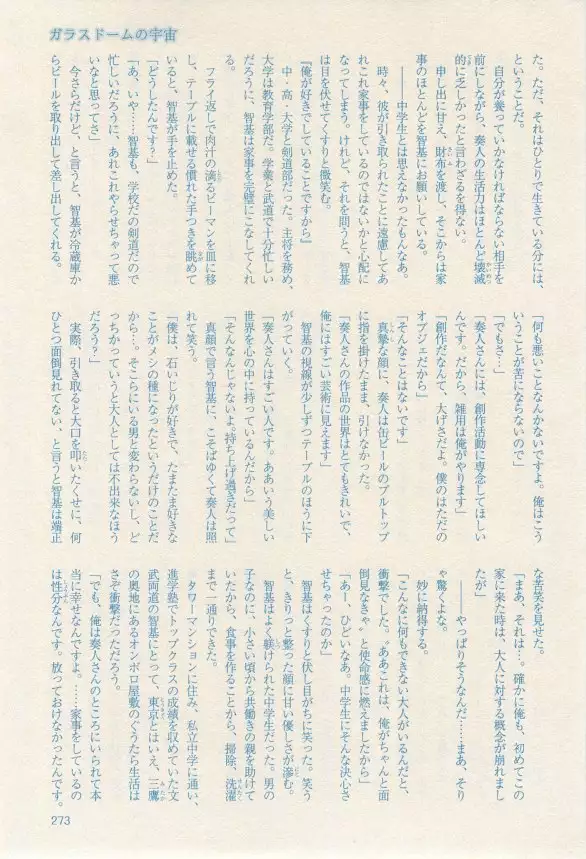 ガラスドームの宇宙
た。ただ、それはひとりで生きている分には、
ということだ。
自分が養っていかなければならない相手を
前にしながら、奏人の生活力はほとんど壊滅
的に乏しかったと言わざるを得ない。
申し出に甘え、財布を渡し、そこからは家
事のほとんどを智基にお願いしている。
――中学生とは思えなかったもんなあ。
時々、彼が引き取られたことに遠慮してあ
れこれ家事をしているのではないかと心配に
なってしまう。けれど、それを問うと、智基
は目を伏せてくすりと微笑む。
『俺が好きでしていることですから』
中・高・大学と剣道部だった。主将を務め、
大学は教育学部だ。学業と武道で十分忙しい
だろうに、智基は家事を完璧にこなしてくれ
る。
フライ返しで肉汁の滴るピーマンを皿に移
し、テーブルに載せる慣れた手つきを眺めて
いると、智基が手を止めた。
「どうしたんです？」
「あ、いや……智基も、学校だの剣道だので
忙しいだろうに、あれこれやらせちゃって悪
いなと思ってさ」
今さらだけど、と言うと、智基が冷蔵庫か
らビールを取り出して差し出してくれる。
「何も悪いことなんかないですよ。俺はこう
いうことが苦にならないので」
「でもさ…」
「奏人さんには、創作活動に専念してほしい
んです。だから、雑用は俺がやります」
「創作だなんて、大げさだよ。僕のはただの
オブジェだから」
「そんなことはないです」
真摯な顔に、奏人は缶ビールのプルトップ
に指を掛けたまま、引けなかった。
「奏人さんの作品の世界はとてもきれいで、
俺にはすごい芸術に見えます」
智基の視線が少しずつテーブルのほうに下
がっていく。
「奏人さんはすごい人です。ああいう美しい
世界を心の中に持っているんだから」
「そんなんじゃないよ。持ち上げ過ぎだって」
真顔で言う智基に、こそばゆくて奏人は照
れて笑う。
「僕は、石いじりが好きで、たまたま好きな
ことがメシの種になったというだけのことだ
から。そこらにいる男と変わらないし、ど
っちかっていうと大人としては不出来なほう
だろう？」
実際、引き取ると大口を叩いたくせに、何
ひとつ面倒見れてない、と言うと智基は端正
な苦笑を見せた。
「まあ、それは…。確かに俺も、初めてこの
家に来た時は、大人に対する概念が崩れまし
たが」
――やっぱりそうなんだ……まあ、そり
ゃ驚くよな。
妙に納得する。
「こんなに何もできない大人がいるんだと、
衝撃でした。〝ああこれは、俺がちゃんと面
倒見なきゃ〟と使命感に燃えましたから」
「あー、ひどいなあ。中学生にそんな決心さ
せちゃったのか」
智基はくすりと伏し目がちに笑った。笑う
と、きりっと整った顔に甘い優しさが滲む。
智基はよく躾けられた中学生だった。男の
子なのに、小さい頃から共働きの親を助けて
いたから、食事を作ることから、掃除、洗濯
まで一通りできた。
タワーマンションに住み、私立中学に通い、
進学塾でトップクラスの成績を収めていた文
武両道の智基にとって、東京とはいえ、三鷹
の奥地にあるオンボロ屋敷のぐうたら生活は
さぞ衝撃だっただろう。
「でも、俺は奏人さんのところにいられて本
当に幸せなんですよ。……家事をしているの
は性分なんです。放っておけなかったんです。
273